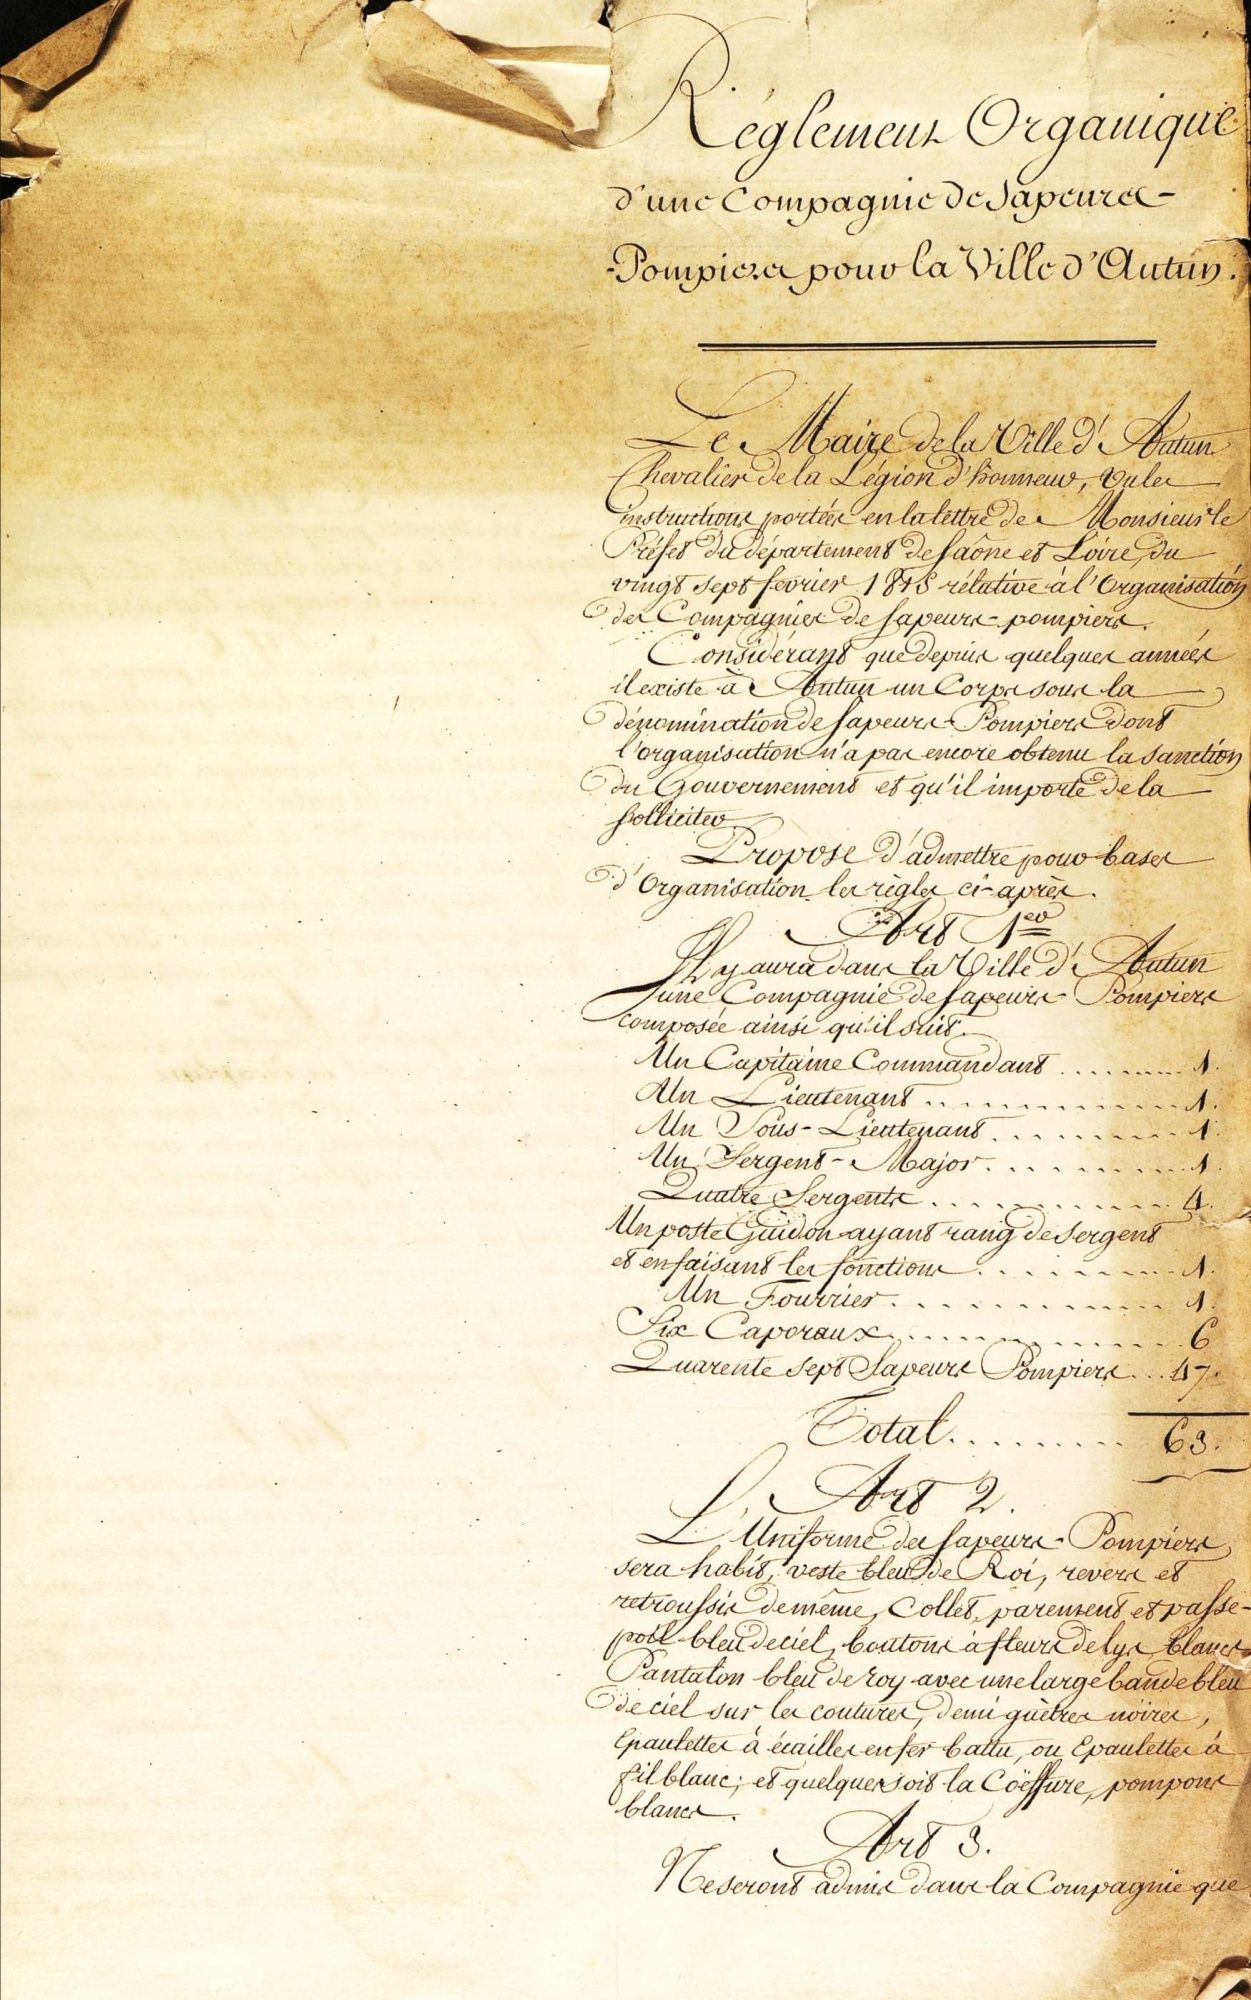 Réglement Organique
d'une Compagnie de Sapeurs-
-Pompiers pour la Ville d'Autun.
Le Maire de la Ville d'Autun
Chevalier de la Légion d'honneur, vu les
instructions portées en la lettre de Monsieur le
Préfet du département de Saône et Loire, du
vingt sept fevrier 1815 rélative à l'Organisation
des Compagnies de Sapeurs-pompiers.
Considérant que depuis quelques années
il existe à Autun un Corps sous la
dénomination de Sapeurs-Pompiers dont
l'organisation n'a pas encore obtenu la sanction
du Gouvernement et qu'il importe de la
solliciter
Propose d'admettre pour bases
d'Organisation les règles ci-après.
Art 1er
Il y aura dans la Ville d'Autun
une Compagnie de Sapeurs-Pompiers
composée ainsi qu'il suit.
Un Capitaine Commandant ........ 1.
Un Lieutenant ........ 1.
Un Sous-Lieutenant ........ 1
Un Sergent-Major ........ 1.
Quatre Sergents ........ 4.
Un poste Guidon ayant rang de Sergent
et en faisant les fonctions ........ 1.
Un Fourrier ........ 1.
Six Caporaux ........ 6
Quarente sept Sapeurs Pompiers ... 47.
Total ........ 63.
Art 2.
L'Uniforme des Sapeurs-Pompiers
sera habit, veste bleu de Roi, revers et
retroussis de même, Collet, parement et passe-
poil bleu de ciel, boutons à fleurs de lys blancs
Pantalon bleu de roy avec une large bande bleu
de ciel sur les coutures, demi guètres noires,
Epaulettes à écailles en fer battu, ou Epaulettes à
fil blanc; et quelque soit la Coëffure, pompons
blancs.
Art 3.
Ne seront admis dans la Compagnie que